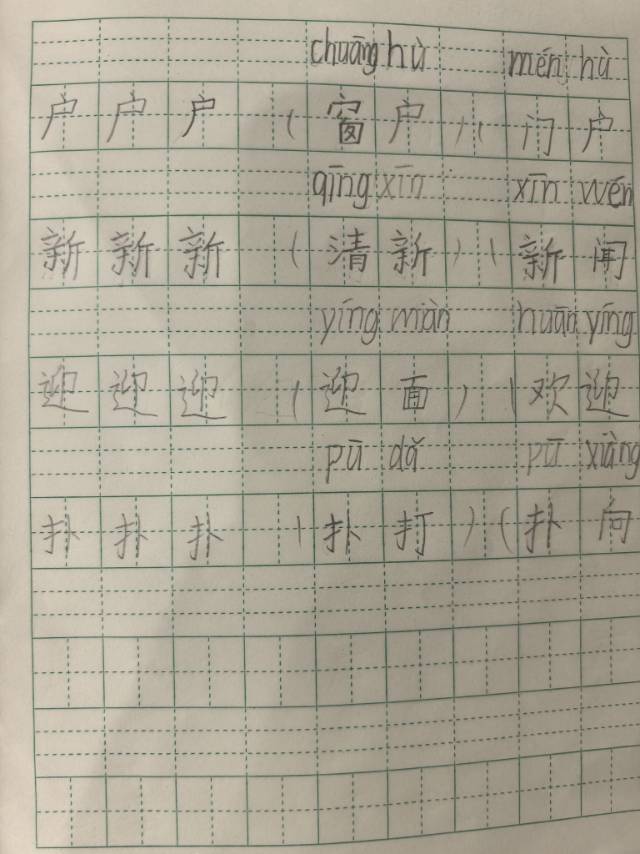 chuāng hù mén hù
户 户 户 ( 窗 户 ) ( 门 户
qīng xīn xīn wén
新 新 新 ( 清 新 ) ( 新 闻
yíng màn huān yíng
迎 迎 迎 ( 迎 面 ) ( 欢 迎
pū dǎ pū xiàng
扑 扑 扑 ( 扑 打 ) ( 扑 向